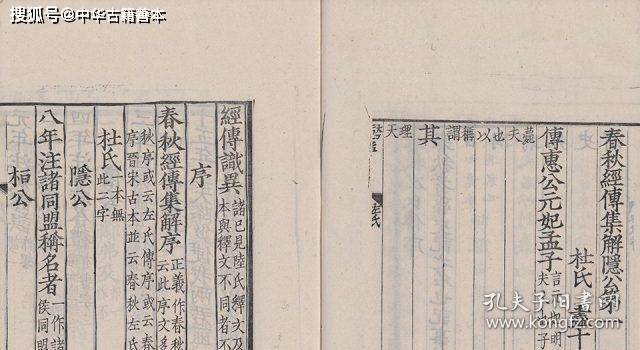 搜狐号@中华古籍善本
春秋經傳集解隱公第
杜氏 盡十
傳惠公元妃孟子 言元妃明
薨夫
也以
稱謂
其
理天
經傳識異 諸已見陸氏釋文及
本與釋文不同者不
序
春秋經傳集解序 正義作春秋
云此序文多
秋序或云左氏傳序或云春
序晉宋古本並云春秋左氏
杜氏 一本無
此二字
隱公
八年注諸同盟稱名者 一作諸
侯同盟
桓公
孔夫子旧书网
www.kongfz.com